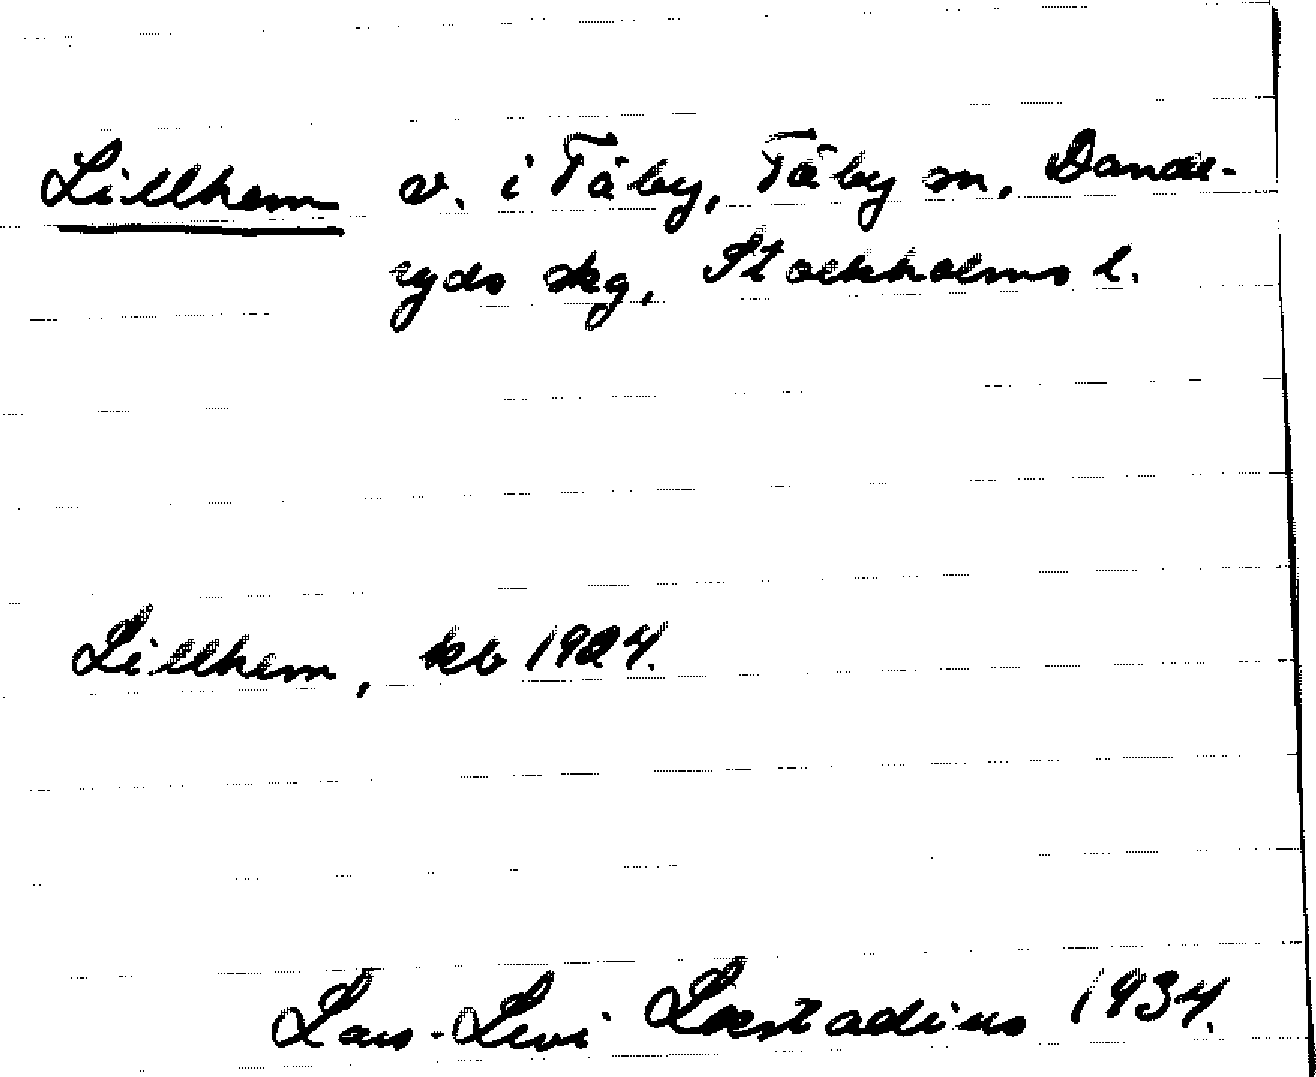 Lillhem v. i Täby, Täby sn, Dande-
ryds skg, Stockholms l.
Lillhem, kb 1924.
Lars-Levi Læstadius 1934.